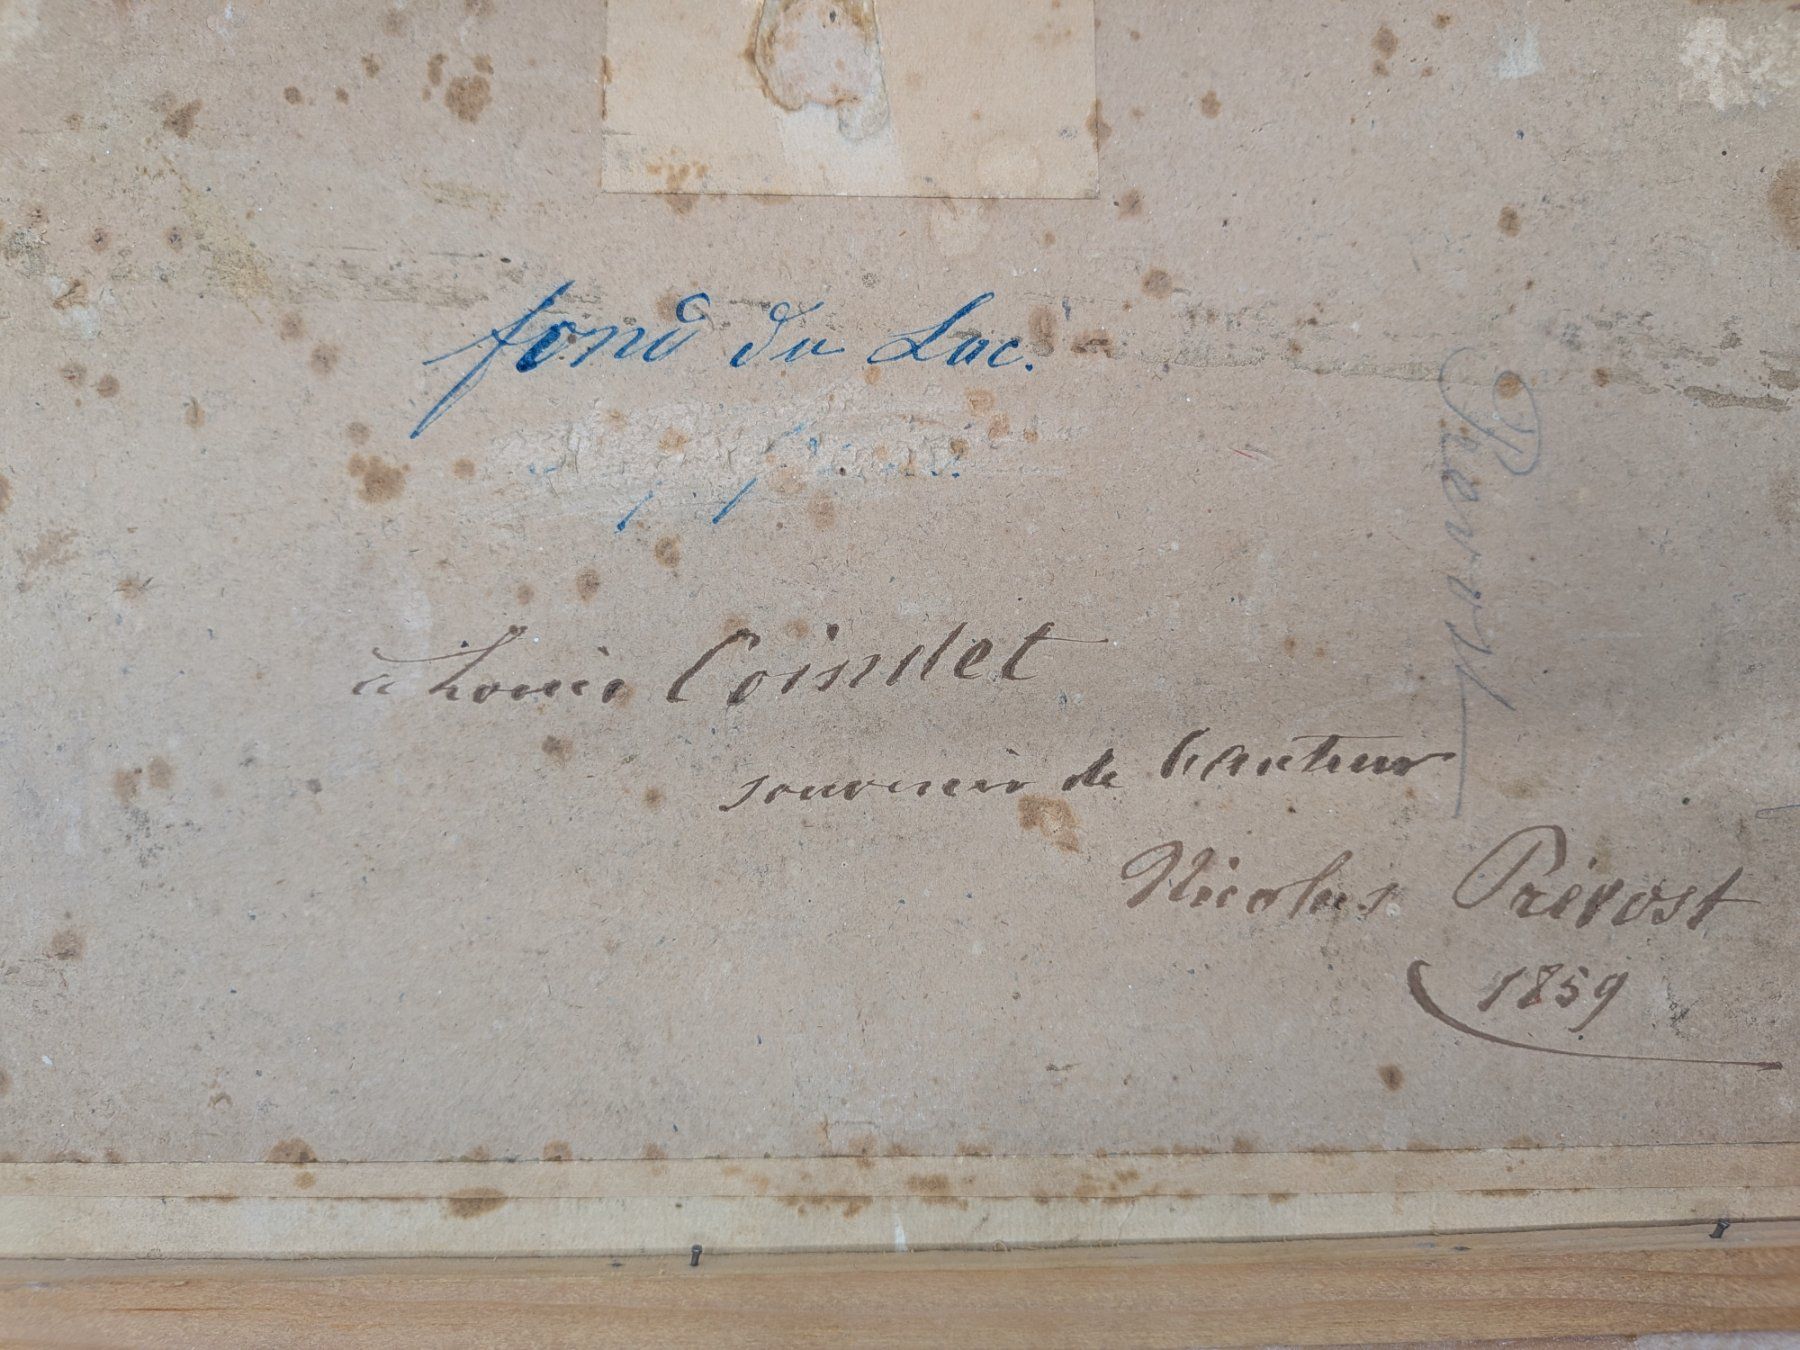 fond du Lac.
à Louis Coindet
souvenir de l'auteur
Nicolas Prévost
1859
Prevost